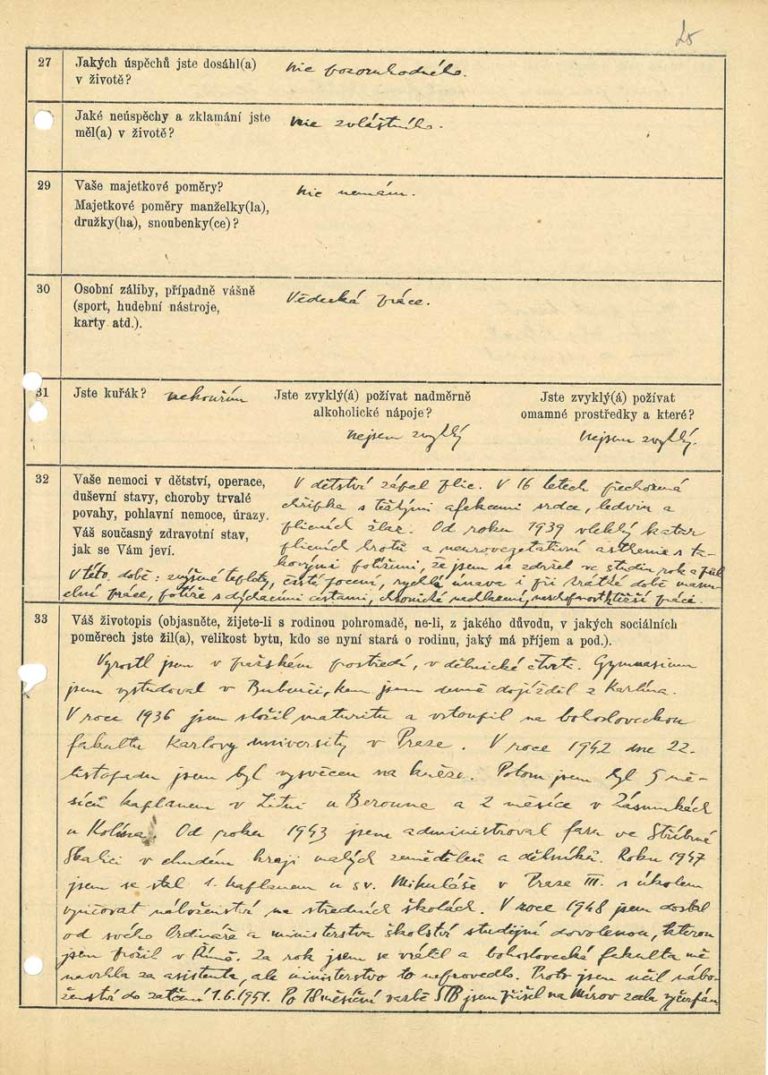 25
27 Jakých úspěchů jste dosáhl(a)
v životě?
nic pozoruhodného.
Jaké neúspěchy a zklamání jste
měl(a) v životě?
nic zvláštního.
29 Vaše majetkové poměry?
Majetkové poměry manželky(la),
družky(ha), snoubenky(ce)?
nic nemám.
30 Osobní záliby, případně vášně
(sport, hudební nástroje,
karty atd.).
Vědecká práce.
31 Jste kuřák? nekouřím
Jste zvyklý(á) požívat nadměrně
alkoholické nápoje?
nejsem zvyklý
Jste zvyklý(á) požívat
omamné prostředky a které?
nejsem zvyklý.
32 Vaše nemoci v dětství, operace,
duševní stavy, choroby trvalé
povahy, pohlavní nemoce, úrazy.
Váš současný zdravotní stav,
jak se Vám jeví.
V dětství zápal plic. V 16 letech přechozená
chřipka s těžkými afekcemi srdce, ledvin a
plicních žlaz. Od roku 1939 vleklý katar
plicních hrotů a neurovegetativní asthenie s ta-
kovými potížemi, že jsem se zdržel ve studiu rok a půl
V této době: zvýšené teploty, časté pocení, rychlá únava i při krátké době
práce, potíže s dýchacími cestami, chronické práci.
33 Váš životopis (objasněte, žijete-li s rodinou pohromadě, ne-li, z jakého důvodu, v jakých sociálních
poměrech jste žil(a), velikost bytu, kdo se nyní stará o rodinu, jaký má příjem a pod.).
Vyrostl jsem v pražském prostředí, v dělnické čtvrti. Gymnasium
jsem vystudoval v Bubenči, kam jsem denně dojížděl z Karlína.
V roce 1936 jsem složil maturitu a vstoupil na bohosloveckou
fakultu Karlovy university v Praze. V roce 1942 dne 22.
listopadu jsem byl vysvěcen na kněze. Potom jsem byl 5 mě-
síců kaplanem v Litni u Berouna a 2 měsíce v Zásmukách
u Kolína. Od roku 1943 jsem administroval faru ve Stříbrné
Skalici v chudém kraji malých zemědělců a dělníků. Roku 1947
jsem se stal 1. kaplanem u sv. Mikuláše v Praze III. s úkolem
vyučovat náboženství na středních školách. V roce 1948 jsem dostal
od svého Ordináře a ministerstva školství studijní dovolenou, kterou
jsem prožil v Římě. Za rok jsem se vrátil a bohoslovecká fakulta mě
navrhla za asistenta, ale ministerstvo to neprovedlo. Proto jsem učil nábo-
ženství do zatčení 1.6.1951. Po 18měsíční vazbě STB jsem přišel na Mírov zcela vyčerpán